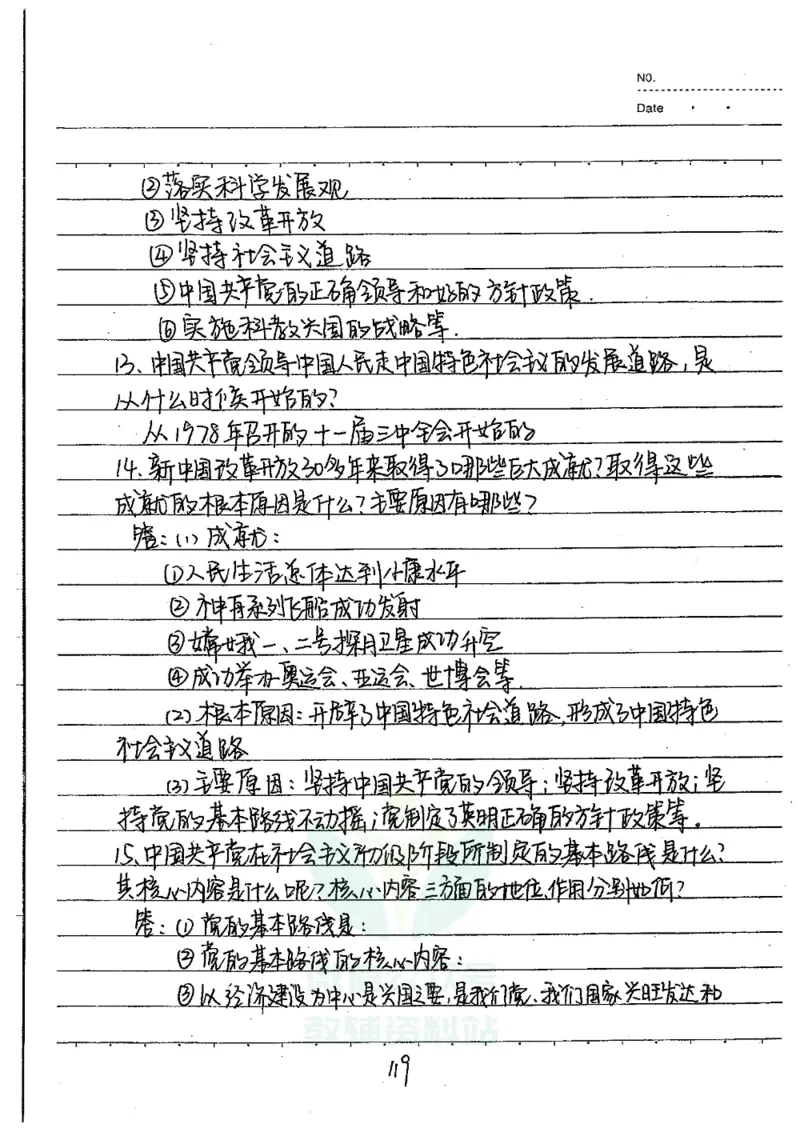 NO.
Date
②落实科学发展观
③坚持改革开放
④坚持社会主义道路
⑤中国共产党的正确领导和好的方针政策.
⑥实施科教兴国的战略等.
13、中国共产党领导中国人民走中国特色社会主义的发展道路,是
从什么时候开始的?
从1978年召开的十一届三中全会开始的
14、新中国改革开放30多年来取得了哪些巨大成就?取得这些
成就的根本原因是什么?主要原因有哪些?
答:(1)成就:
①人民生活总体达到小康水平
②神舟系列飞船成功发射
③嫦娥一、二号探月卫星成功升空
④成功举办奥运会、亚运会、世博会等.
(2)根本原因:开辟了中国特色社会道路,形成了中国特色
社会主义道路
(3)主要原因:坚持中国共产党的领导;坚持改革开放;坚
持党的基本路线不动摇;党制定了英明正确的方针政策等。
15、中国共产党在社会主义初级阶段所制定的基本路线是什么?
其核心内容是什么呢?核心内容三方面的地位、作用分别如何?
答:①党的基本路线是:
②党的基本路线的核心内容:
③以经济建设为中心是兴国之要,是我们党、我们国家兴旺发达和
教辅资料站
119